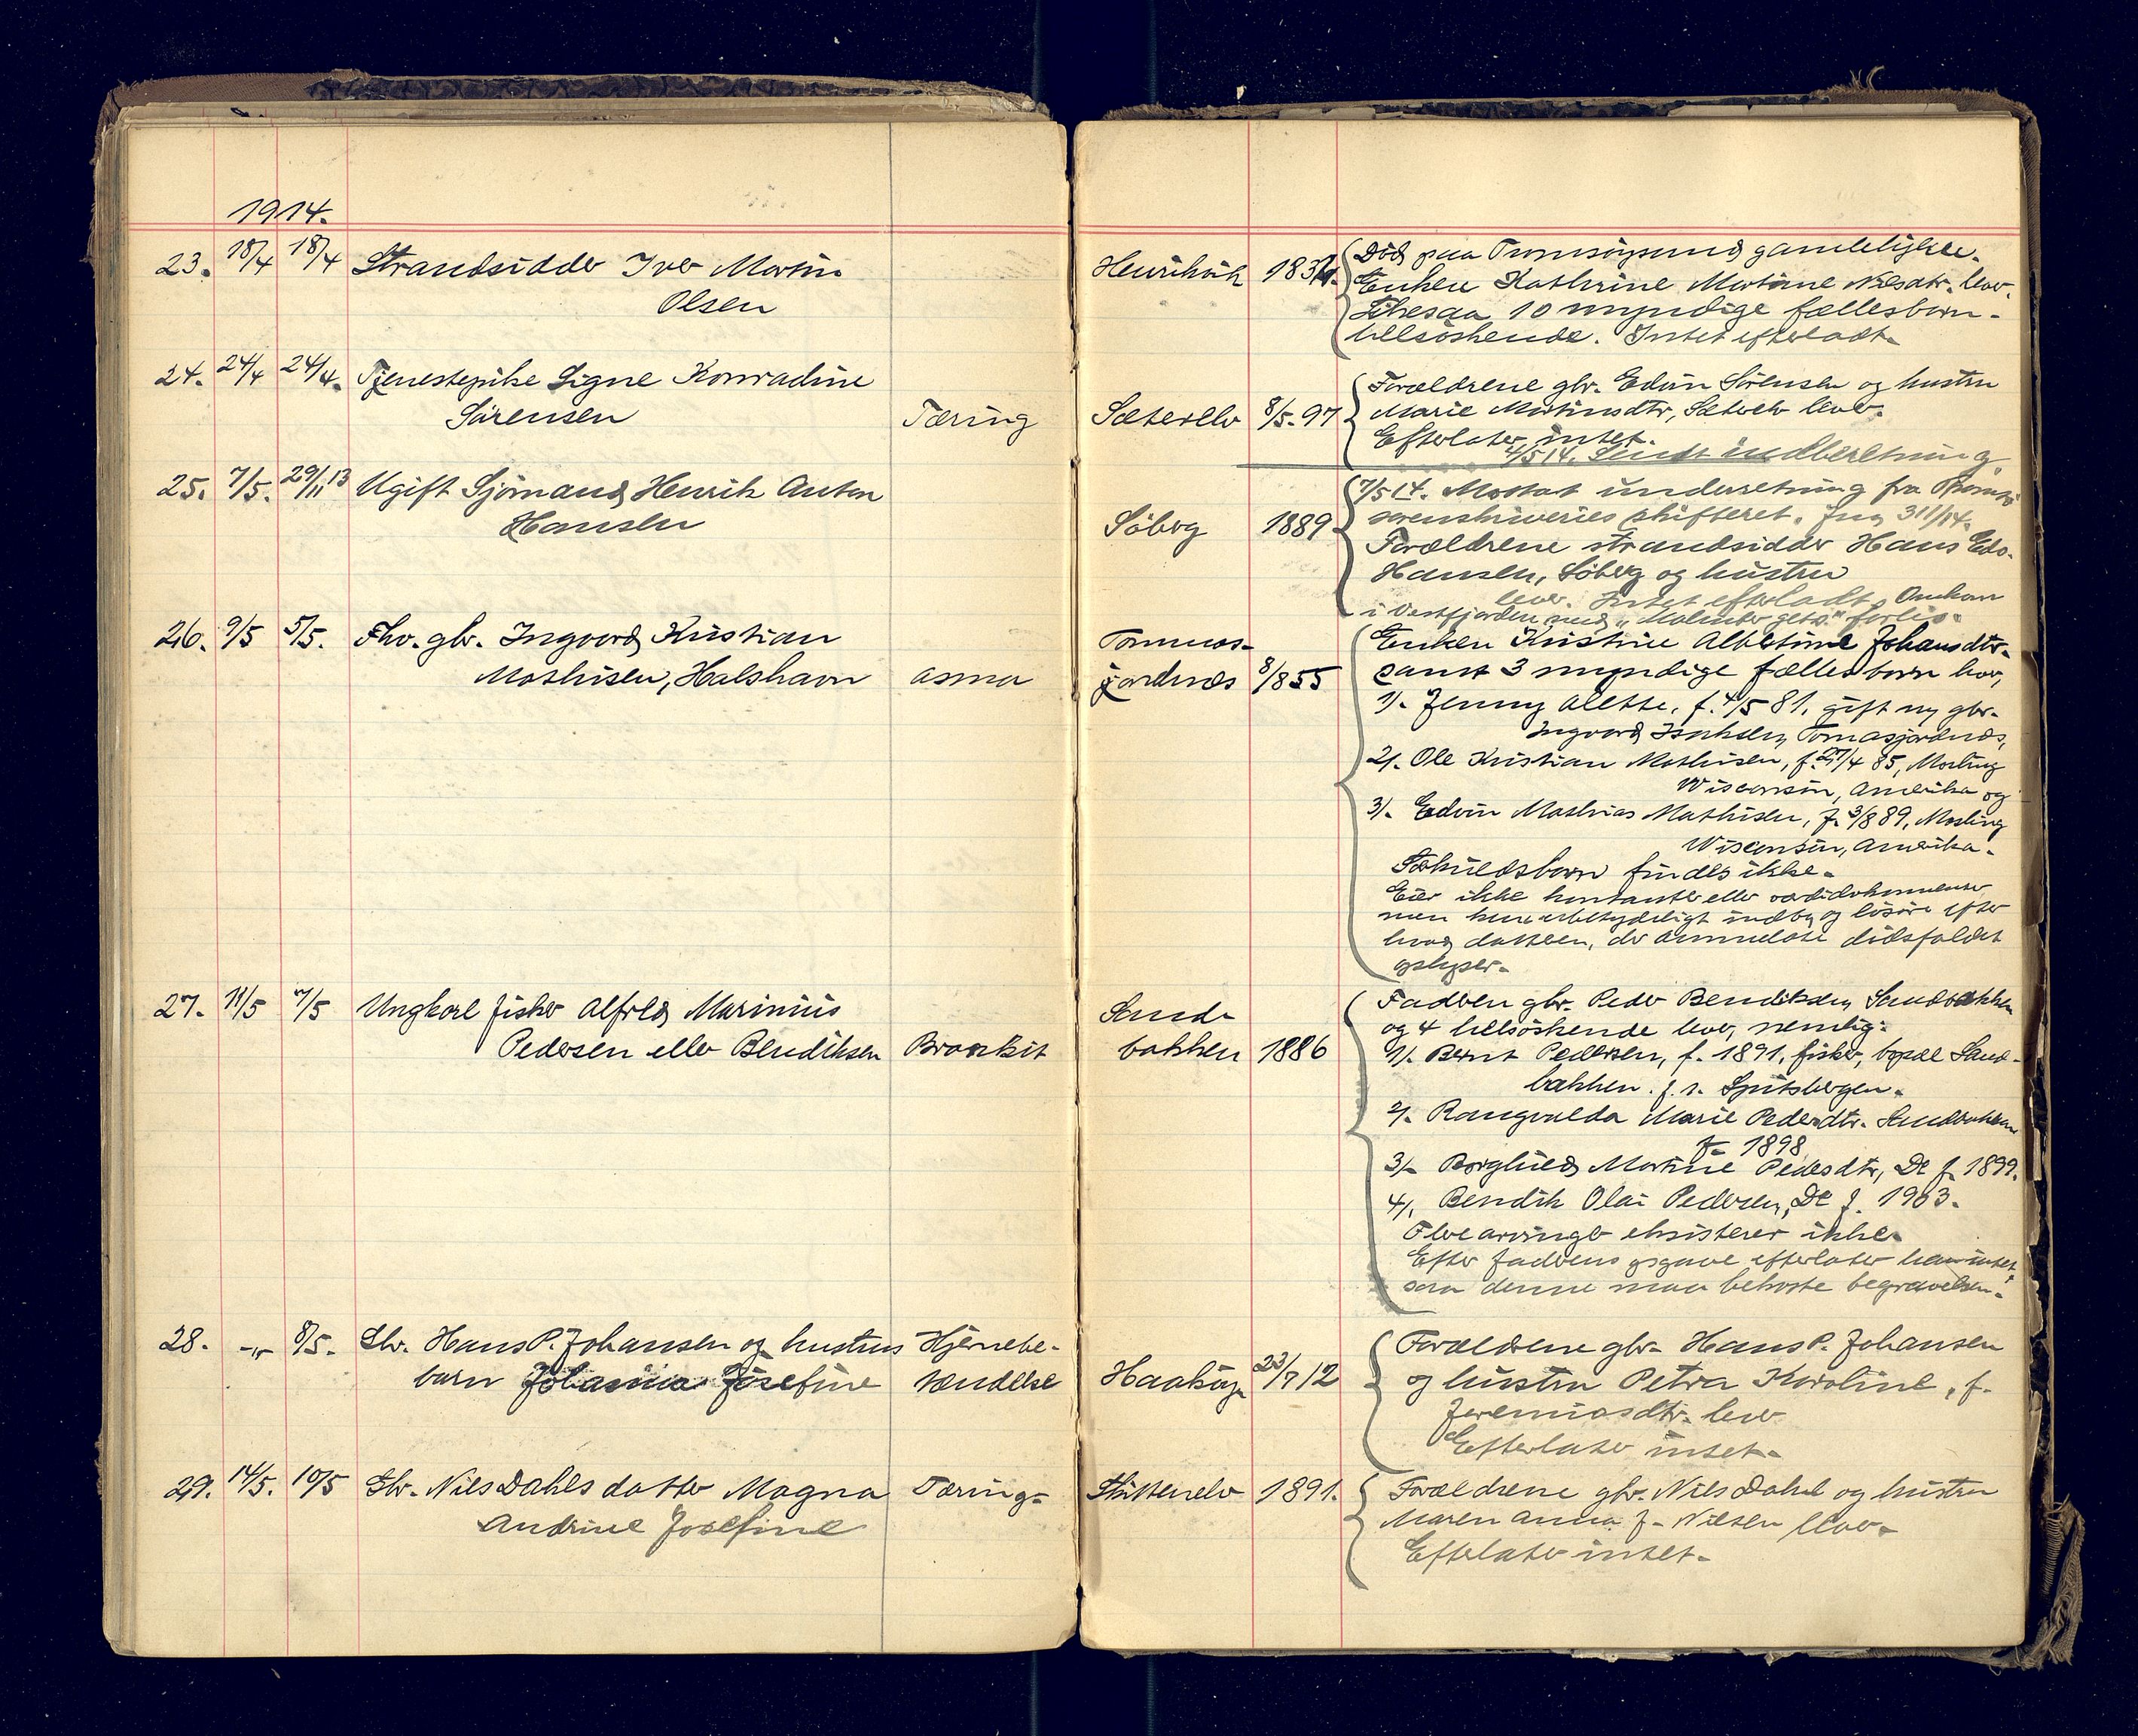 1914.
23. 18/4 18/4 Strandsidder Iver Martin
Olsen
Henrikvik 183
Död paa Tromsöysund gamlehjem.
Enken Kathrine Martine Nilsdtr. lever,
10 myndige fællesbørn.
helsöskende. Intet efterladt.
24. 24/4 24/4. Tjenestepike Signe Konradine
Sörensen Tæring
Sæterelv 8/5-97
Forældrene gbr. Edvin Sörensen og hustru
Marie Martinsdtr, Sæterelv lever.
Efterlater intet.
4/5 14. Sendt indberetning
25. 7/5. 29/11 13 Ugift Sjömand Henrik Anton
Hansen
Söberg 1889
7/5 14. Mottat underretning fra Tromsö
sorenskriveries skifteret. Jnr 311/14.
Forældrene strandsidder Hans Edv.
Hansen, Söberg og hustru
lever. Intet efterladt. Omkom
i Vestfjorden med forlis.
26. 9/5 5/5. Fhv. gbr. Ingvard Kristian
Mathisen, Halshavn asma
Tomas-
jordnes 8/8 55
Enken Kristine Albertine Johansdtr.
samt 3 myndige fællesbørn lever,
1/. Jenny Alette, f. 4/5 81, gift m gbr.
Ingvard Isaksen, Tomasjordnes,
2/. Ole Kristian Mathisen, f. 27/4 85,
Wisconsin, Amerika og
3/. Edvin Mathias Mathisen, f. 3/8 89,
Wisconsin, Amerika.
Særkuldsbarn findes ikke.
Eier ikke kontanter eller værdidokumenter
men kun ubetydeligt indbo og lösöre efter
hvad datteren, der anmeldte dödsfaldet
oplyser.
27. 11/5 7/5 Ungkarl fisker Alfred Marinius
Pedersen eller Bendiksen
Sand-
bakken 1886
Faderen gbr. Peder Bendiksen, Sandbakken
og 4 helsöskende lever, nemlig:
1/. Bernt Pedersen, f. 1891, fisker, bopæl Sand-
bakken. f. t. Spitsbergen.
2/. Rangvalda Marie Pedersdtr. Sandbakken
f. 1898
3/. Borghild Martine Pedersdtr, De f. 1899.
4/. Bendik Olai Pedersen, De f. 1903.
Flere arvinger eksisterer ikke.
Efter faderens opgave efterlater han intet,
saa denne maa bekoste begravelsen.
28. -"- 8/5. Gbr. Hans P. Johansen og hustrus Hjernebe-
barn Johanna Josefine tændelse
Haaköya 23/7 12
Forældrene gbr. Hans P. Johansen
og hustru Petra Karoline, f.
Jeremiasdtr. lever
Efterlater intet.
29. 14/5. 10/5 Gbr. Nils Dahls datter Magna Tæring.
Andrine Josefine
Skittenelv 1891.
Forældrene gbr. Nils Dahl og hustru
Maren Anna f. Nilsen lever.
Efterlater intet.